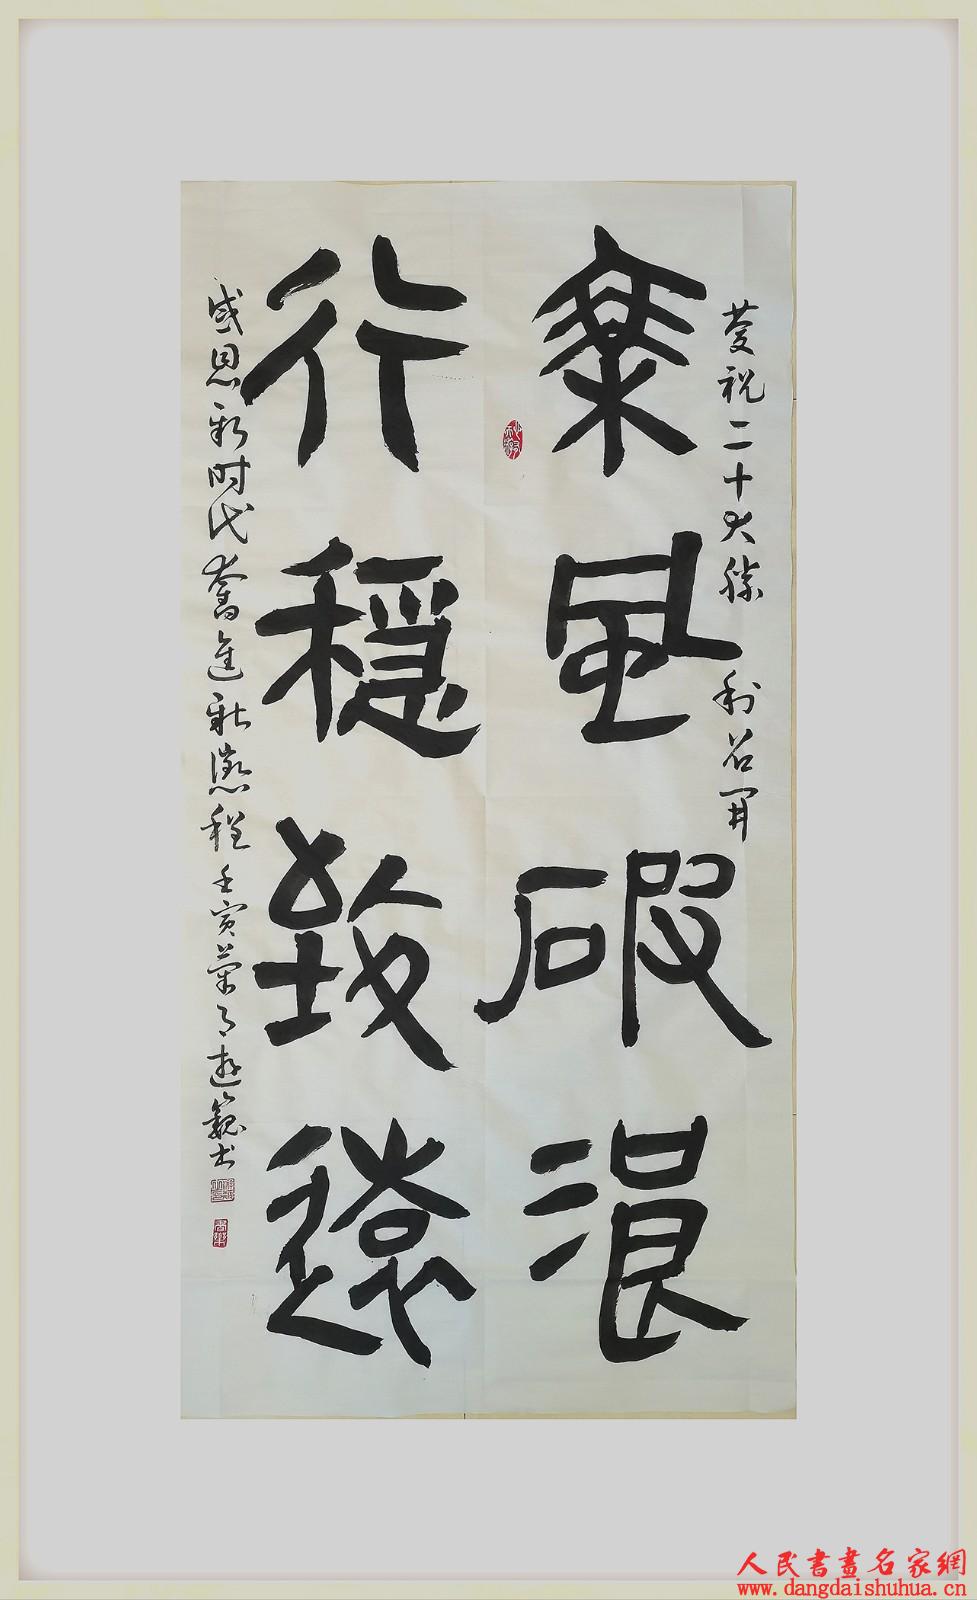 慶祝二十大勝利召開
乘風破浪
行穩致遠
感恩新时代奮進新徵程壬寅菊月遊巍书
人民書畫名家網
www.dangdaishuhua.cn